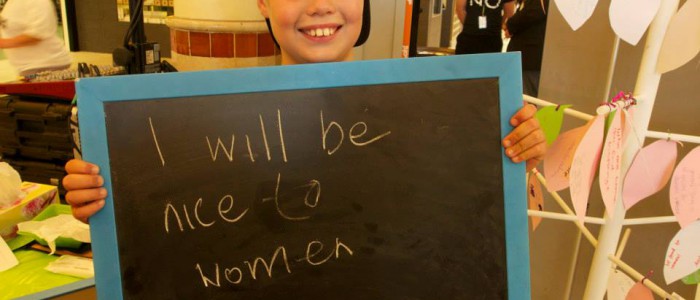 NO
I will be
nice to
women